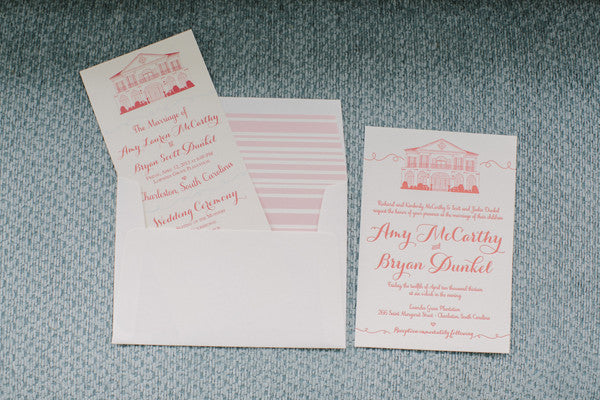 The Marriage of
Amy Lauren McCarthy
&
Bryan Scott Dunkel
Friday, June 12, 2013 at 6:00 PM
Lowndes Grove Plantation
Charleston, South Carolina
Wedding Ceremony
Richard and Kimberly McCarthy & Scott and Jackie Dunkel
request the honor of your presence at the marriage of their children
Amy McCarthy
and
Bryan Dunkel
Friday the twelfth of April two thousand thirteen
at six o'clock in the evening
Lowndes Grove Plantation
266 Saint Margaret Street - Charleston, South Carolina
Reception immediately following